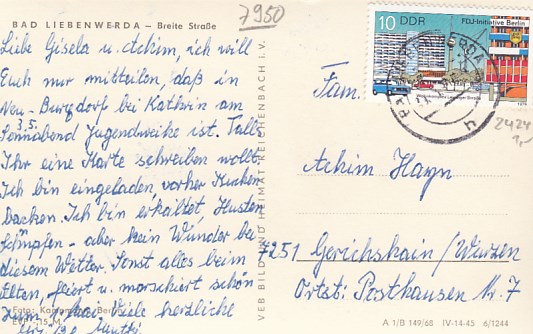 7950
BAD LIEBENWERDA – Breite Straße
Liebe Gisela u. Achim, ich will
Euch nur mitteilen, daß in
Neu-Burgdorf bei Kathrin am
3.5.
Sonnabend Jugendweihe ist. Falls
Ihr eine Karte schreiben wollt.
Ich bin eingeladen, vorher Kuchen
backen. Ich bin erkältet, Husten
Schnupfen – aber kein Wunder bei
diesem Wetter. Sonst alles beim
Alten, feiert u. marschiert schön
zum 1. Mai. Viele herzliche
Foto: Berlin
EVP -,15 M
VEB BILD UND HEIMAT REICHENBACH i. V.
10 DDR
FDJ-Initiative Berlin
2424
1,-
Fam.
Achim Hayn
7251 Gerichshain/Wurzen
Ortst. Posthausen Nr. 7
A 1/B 149/68 IV-14-45 6/1244